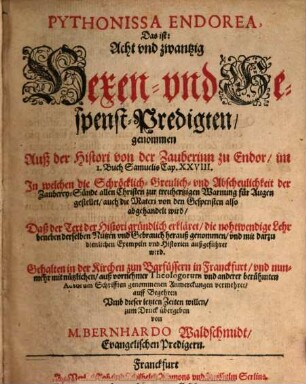 PYTHONISSA ENDOREA,
Das ist:
Acht vnd zwantzig
Hexen- vnd Ge-
spenst-Predigten/
genommen
Auß der Histori von der Zauberinn zu Endor/ im
1. Buch Samuelis Cap. XXVIII.
In welchen die Schröcklich- Greulich- vnd Abscheulichkeit der
Zauberey-Sünde allen Christen zur trewhertzigen Warnung für Augen
gestellet/ auch die Materi von den Gespensten also
abgehandelt wird/
Daß der Text der Histori gründlich erkläret/ die nohtwendige Lehr
beneben derselben Nutzen vnd Gebrauch herauß genommen/ vnd mit darzu
dienlichen Exempeln vnd Historien außgeführet
wird.
Gehalten in der Kirchen zun Barfüssern in Franckfurt/ vnd nun-
mehr mit nützlichen/ auß vornehmer Theologorum vnd anderer berühmten
Autorum Schrifften genommenen Anmerckungen vermehret/
auff Begehren
Vnnd dieser letzten Zeiten willen/
zum Druck übergeben
von
M. BERNHARDO Waldschmidt/
Evangelischen Predigern.
Franckfurt
Wilhelm Serlins